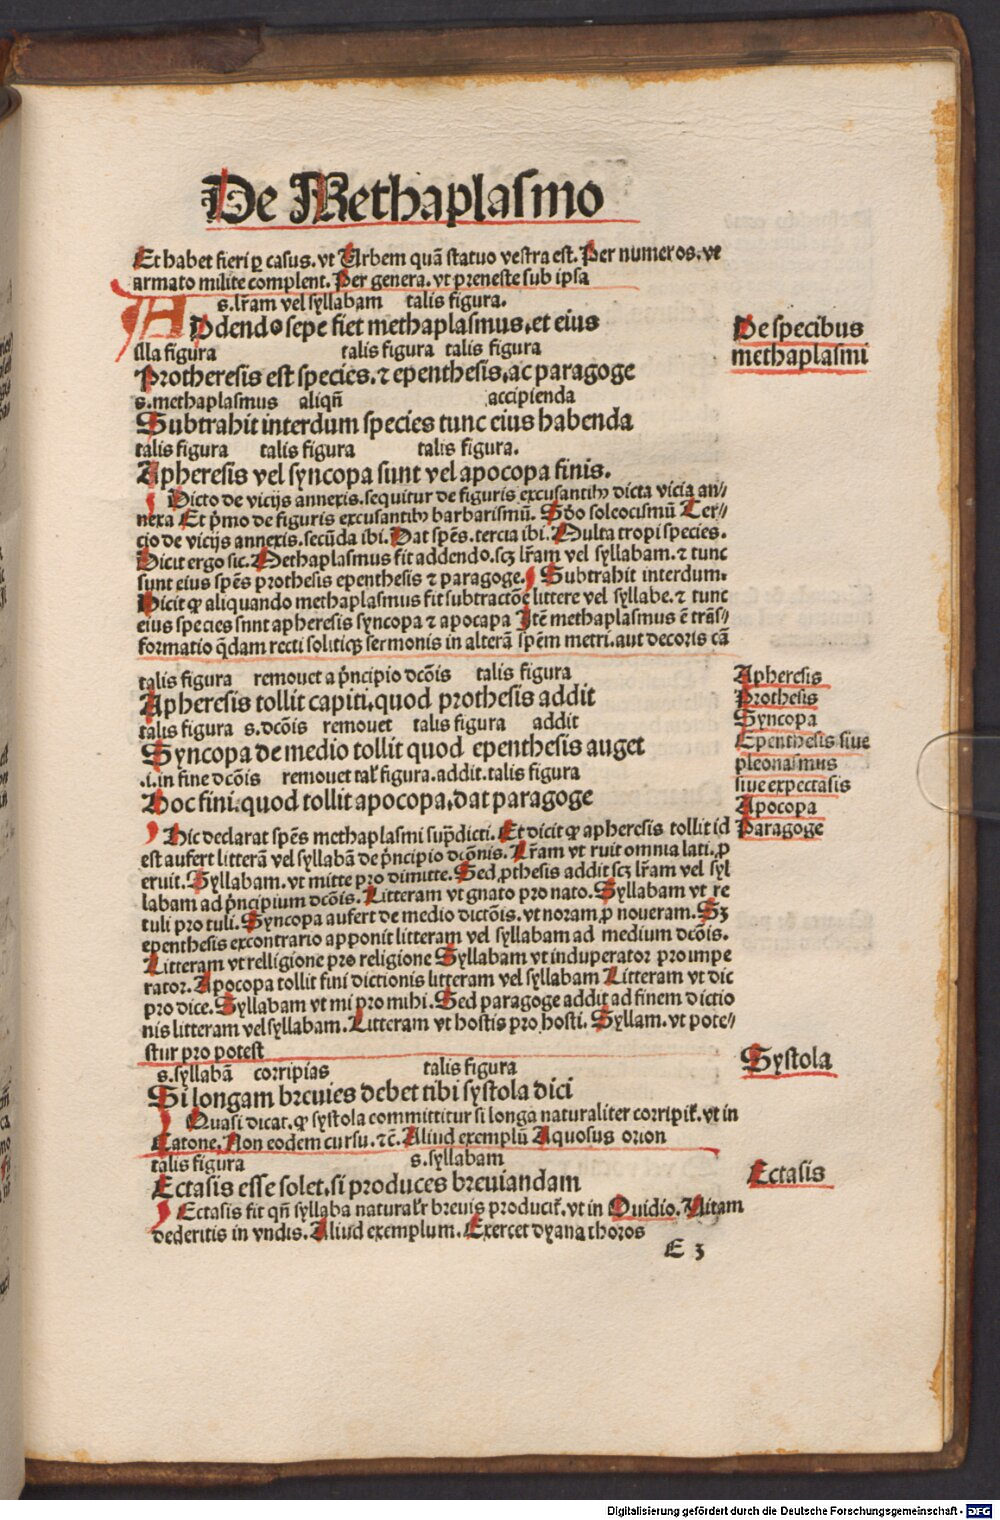 De Methaplasmo
Et habet fieri ꝑ casus. vt Urbem quã statuo vestra est. Per numeros. vt
armato milite complent. Per genera. vt preneste sub ipsa
s. lr̃am vel syllabam talis figura.
ADdendo sepe fiet methaplasmus, et eius
illa figura talis figura talis figura
Protheresis est species. ⁊ epenthesis, ac paragoge
s. methaplasmus aliqñ accipienda
Subtrahit interdum species tunc eius habenda
talis figura talis figura talis figura.
Apheresis vel syncopa sunt vel apocopa finis.
Dicto de vicijs annexis. sequitur de figuris excusantibꝰ dicta vicia an//
nexa Et p̃mo de figuris excusantibꝰ barbarismũ. Scd̃o soloecismũ Ter//
cio de vicijs annexis. secũda ibi. Dat sp̃es. tercia ibi. Multa tropi species.
Dicit ergo sic. Methaplasmus fit addendo. scꝫ lr̃am vel syllabam. ⁊ tunc
sunt eius sp̃es prothesis epenthesis ⁊ paragoge. Subtrahit interdum.
Dicit ꝙ aliquando methaplasmus fit subtractõe littere vel syllabe. ⁊ tunc
eius species snnt apheresis syncopa ⁊ apocapa Itẽ methaplasmus ẽ trãs//
formatio q̃dam recti solitiqꝫ sermonis in alterã sp̃em metri. aut decoris cã
talis figura remouet a p̃ncipio dcõis talis figura
Apheresis tollit capiti, quod prothesis addit
talis figura s. dcõis remouet talis figura addit
Syncopa de medio tollit quod epenthesis auget
.i. in fine dcõis remouet tal̃ figura. addit. talis figura
Hoc fini. quod tollit apocopa, dat paragoge
Hic declarat sp̃es methaplasmi sup̃dicti. Et dicit ꝙ apheresis tollit id
est aufert litterã vel syllabã de p̃ncipio dcõnis. Lr̃am vt ruit omnia lati. ꝓ
eruit. Syllabam. vt mitte pro dimitte. Sed, ꝓthesis addit scꝫ lr̃am vel syl
labam ad p̃ncipium dcõis. Litteram vt gnato pro nato. Syllabam vt re
tuli pro tuli. Syncopa aufert de medio dictõis. vt noram, ꝓ noueram. Sꝫ
epenthesis excontrario apponit litteram vel syllabam ad medium dcõis.
Litteram vt relligione pro religione Syllabam vt induperator pro impe
rator. Apocopa tollit fini dictionis litteram vel syllabam Litteram vt dic
pro dice. Syllabam vt mi pro mihi. Sed paragoge addit ad finem dictio
nis litteram vel syllabam. Litteram vt hostis pro hosti. Syllam. vt pote//
stur pro potest
s. syllabã corripias talis figura
Si longam breuies debet tibi systola dici
Quasi dicat. ꝙ systola committitur si longa naturaliter corripit̃. vt in
Catone. Non eodem cursu. ⁊c̃. Aliud exemplũ Aquosus orion
talis figura s. syllabam
Ectasis esse solet. si produces breuiandam
Ectasis fit qñ syllaba natural̃r breuis producit̃. vt in Ouidio. Uitam
dederitis in vndis. Aliud exemplum. Exercet dyana thoros
E 3
De specibus
methaplasmi
Apheresis
Prothesis
Syncopa
Epenthesis siue
pleonasmus
siue expectasis
Apocopa
Paragoge
Systola
Ectasis
Digitalisierung gefördert durch die Deutsche Forschungsgemeinschaft - DFG